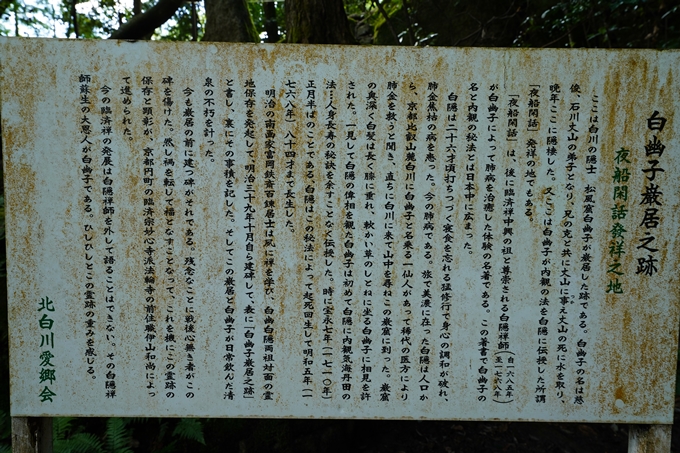 白幽子巌居之跡
夜船閑話發祥之地
ここは白川の隠士 松風窟白幽子が巌居した跡である。白幽子の名は慈
俊、石川丈山の弟子となり、兄の克と共に丈山に事え丈山の死に水を取り、
晩年ここに隠棲した。又ここは白幽子が内観の法を白隠に伝授した所謂
「夜船閑話」発祥の地でもある。
「夜船閑話」は、後に臨済禅中興の祖と尊崇される白隠禅師(自一六八五年 至一七六八年)
が白幽子によって肺病を治癒した体験の名著である。この著書で白幽子の
名と内観の秘法とは日本中に広まった。
白隠は二十六才頃打ちつづく寝食を忘れる猛修行で身心の調和が破れ、
肺金焦枯の病を患った。今の肺病である。旅で美濃に在った白隠は人口か
ら、京都比叡山麓白川に白幽子と名乗る一仙人があって稀代の医方により
肺金を救うと聞き、直ちに白川に来て山中を尋ねこの巌窟に到った。巌窟
の奥深く白髪は長く膝に垂れ、軟かい草のしとねに坐る白幽子に相見を許
された。一見して白隠の偉相を観た白幽子は初めて白隠に内観気海丹田の
法…人身長寿の秘訣を余すことなく伝授した。時に宝永七年(一七一〇年)
正月半ばのことである。白隠はこの秘法によって起死回生して明和五年(一
七六八年)八十四才まで長生した。
明治の南画家富岡鉄斎百錬居士は夙に禅を学び、白幽白隠両祖対面の霊
地保存を発起して、明治三十九年十月自ら建碑して、表に「白幽子巌居之蹟」
と書し、裏にその事積を記した。そしてこの巌居と白幽子が日常飲んだ清
泉の不朽を計った。
今も巌居の前に建つ碑がそれである。残念なことに戦後心無き者がこの
碑を傷けた。然し禍を転じて福となすことなって、これを機にこの霊跡の
保存と顕彰が、京都円町の臨済宗妙心寺派法輪寺の前住職伊山和尚によっ
て進められた。
今の臨済禅の発展は白隠禅師を外して語ることはできない。その白隠禅
師蘇生の大恩人が白幽子である。ひしひしとこの霊跡の重みを感じる。
北白川愛郷会